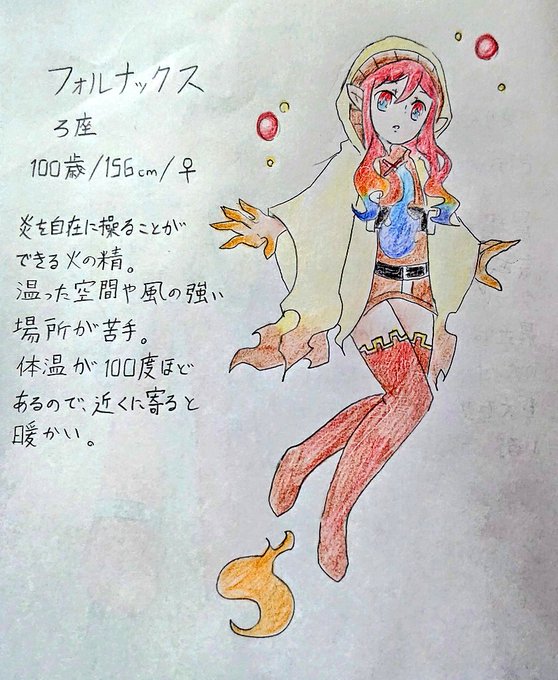 フォルナックス
ろ座
100歳/156cm/♀
炎を自在に操ることが
できる火の精。
湿った空間や風の強い
場所が苦手。
体温が100度ほど
あるので、近くに寄ると
暖かい。